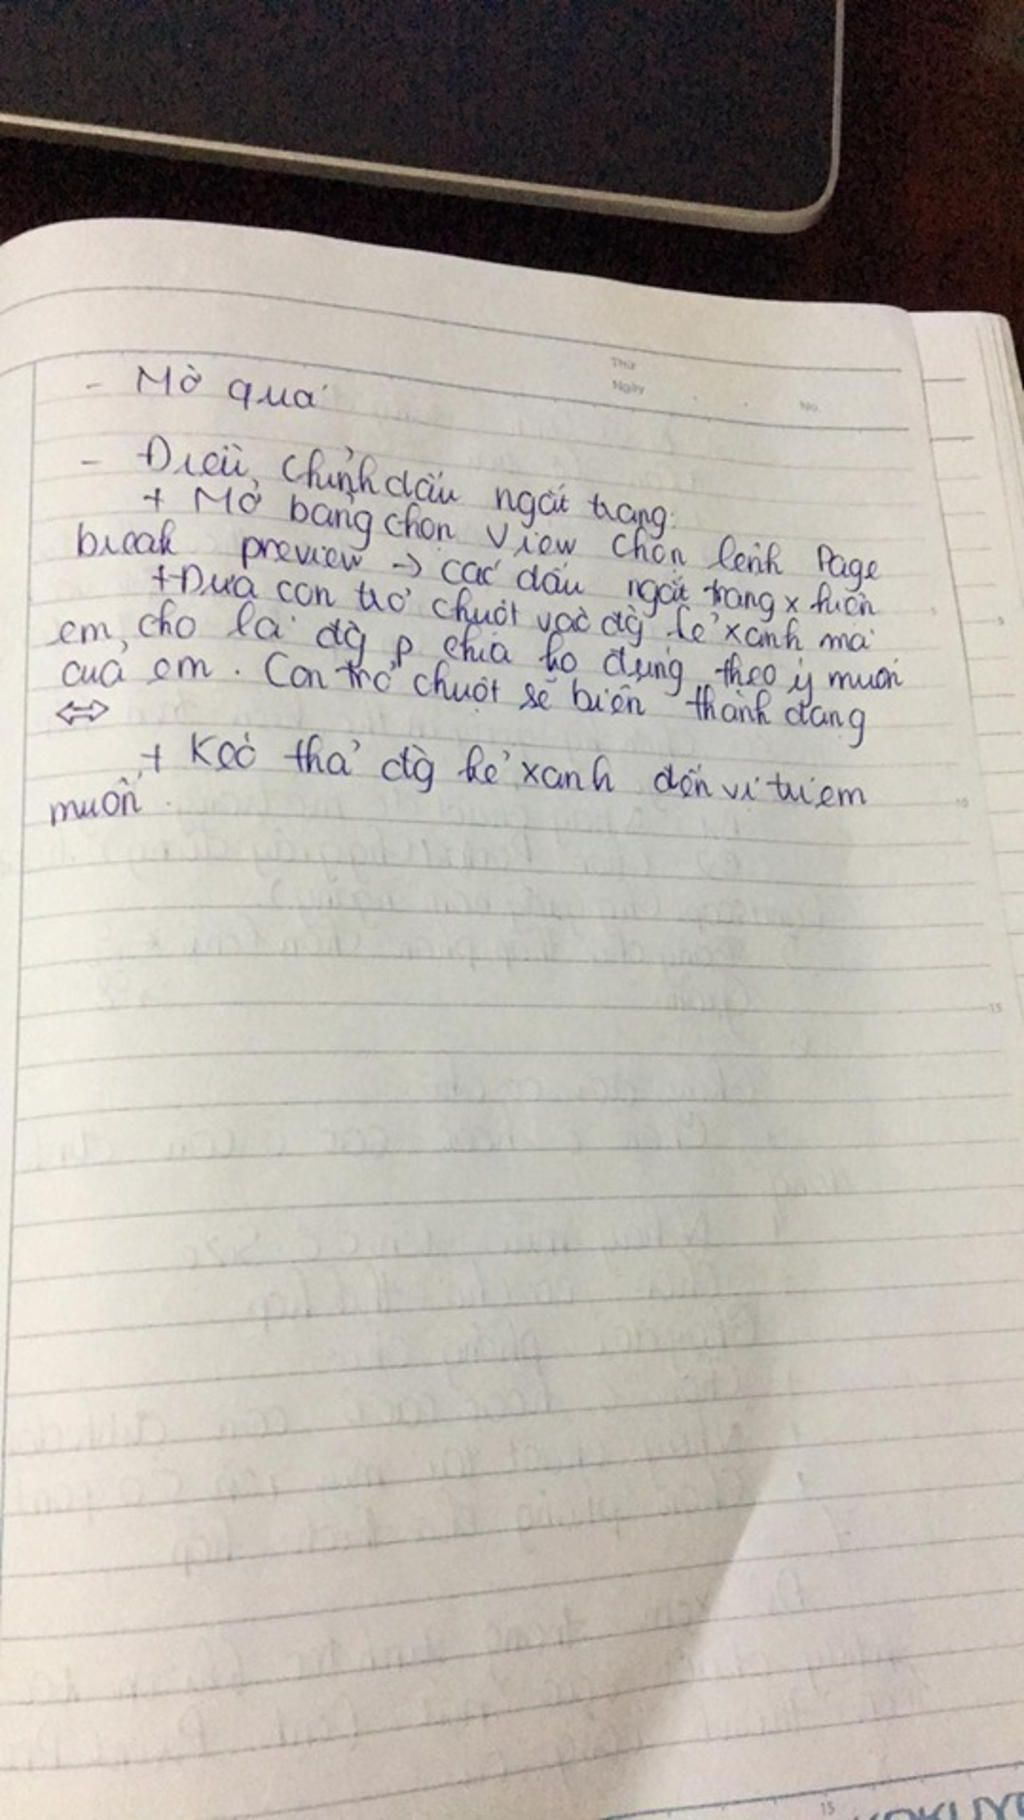 Thứ
Ngày
No.
- Mờ quá
- Điều chỉnh dấu ngắt trang:
+ Mở bảng chọn View chọn lệnh Page
break preview → các dấu ngắt trang x hiện
+ Đưa con trỏ chuột vào đg kẻ xanh mà
em cho là đg p chia ko đúng theo ý muốn
của em. Con trỏ chuột sẽ biến thành dạng
⇔
+ Kéo thả đg kẻ xanh đến vị trí em
muốn.
5
10
15
15